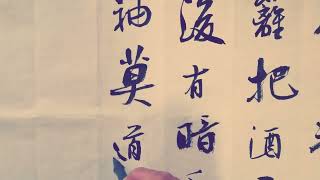 籬把酒
後有暗
袖莫道